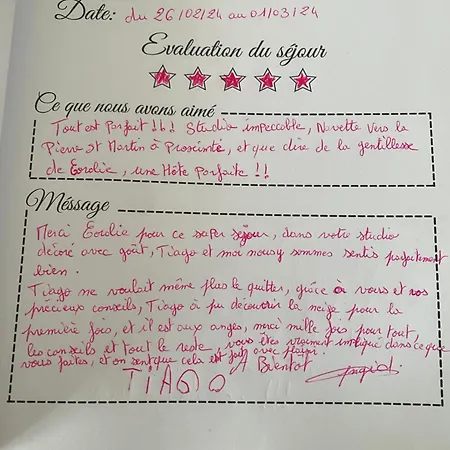 Date: du 26/02/24 au 01/03/24
Evaluation du séjour
Ce que nous avons aimé
Tout est Parfait !!! Studio impeccable, Navette vers la
Pierre St Martin à Proximité, et que dire de la gentillesse
de Coralie, une Hôte Parfaite !!
Méssage
Merci Coralie pour ce super séjour, dans votre studio
décoré avec goût, Tiago et moi nous y sommes sentis parfaitement
bien.
Tiago ne voulait même plus le quitter, grâce à vous et vos
précieux conseils, Tiago à pu découvrir la neige pour la
première fois, et il est aux anges, merci mille fois pour tout,
les conseils et tout le reste, vous êtes vraiment impliqué dans ce que
vous faites, et on sent que cela est fait avec plaisir.
A Bientot
TIAGO